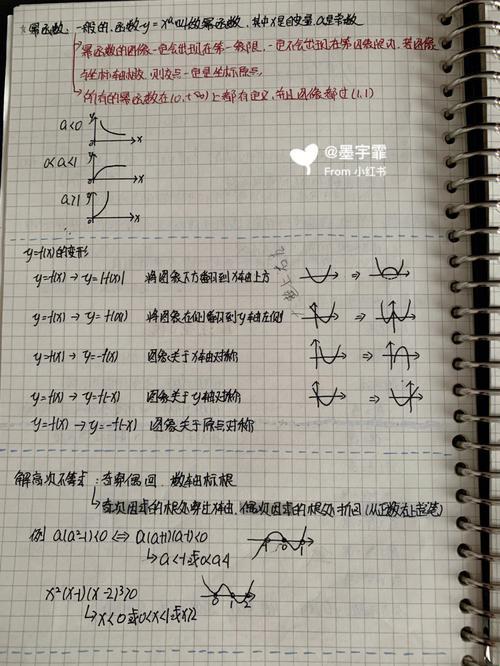 幂函数：一般的，函数y=xᵅ叫做幂函数，其中x是自变量，α是常数
→幂函数的图像一定会出现在第一象限，一定不会出现在第四象限内，若图像
与坐标轴相交，则交点一定是坐标原点.
→所有的幂函数在(0,+∞)上都有定义，并且图像都过(1,1)
a<0
y
x
0<a<1
y
x
a>1
y
x
@墨宇霏
From 小红书
y=f(x)的变形
y=f(x)→y=|f(x)| 将图象下方翻到x轴上方 ⇒
y=f(x)→y=f(|x|) 将图象右侧翻到y轴左侧 ⇒
y=f(x)→y=-f(x) 图象关于x轴对称 ⇒
y=f(x)→y=f(-x) 图象关于y轴对称 ⇒
y=f(x)→y=-f(-x) 图象关于原点对称
解高次不等式：奇穿偶回，数轴标根
↳奇次因式的根处穿过x轴，偶次因式的根处折回(从正数右上起笔)
例 a(a²-1)<0⇔a(a+1)(a-1)<0
-1 0 1
↳a<-1或0<a<1
x²(x-1)(x-2)³≥0
0 1 2
↳x<0或0<x<1或x≥2